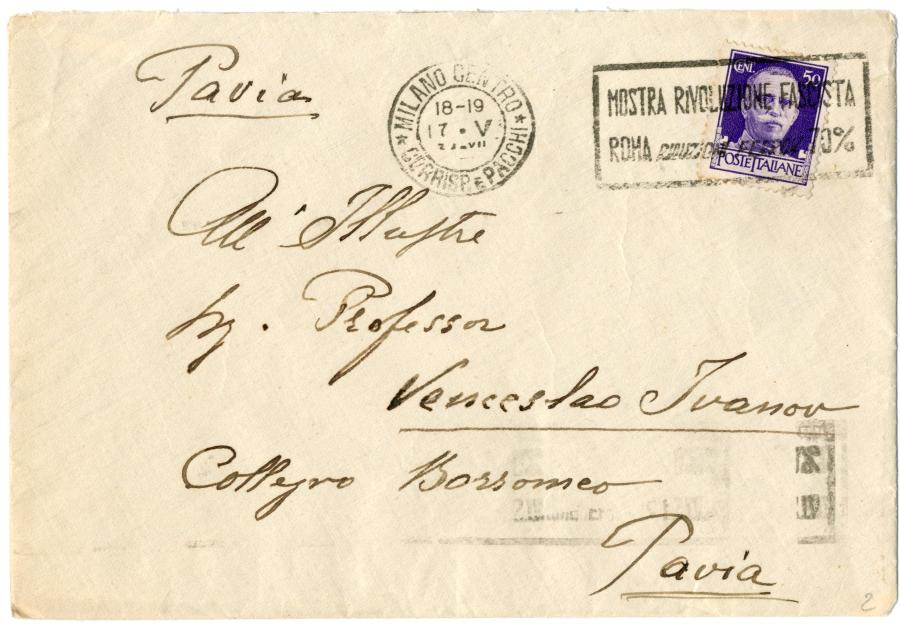 Pavia
MILANO CENTRO
18-19
17 · V
CORRISP. E PACCHI
CENT. 50
MOSTRA RIVOLUZIONE FASCISTA
ROMA RIDUZIONI FERROV. 70%
POSTE ITALIANE
All' Illustre
Sig. Professor
Venceslao Ivanov
Collegio Borromeo
Pavia
2